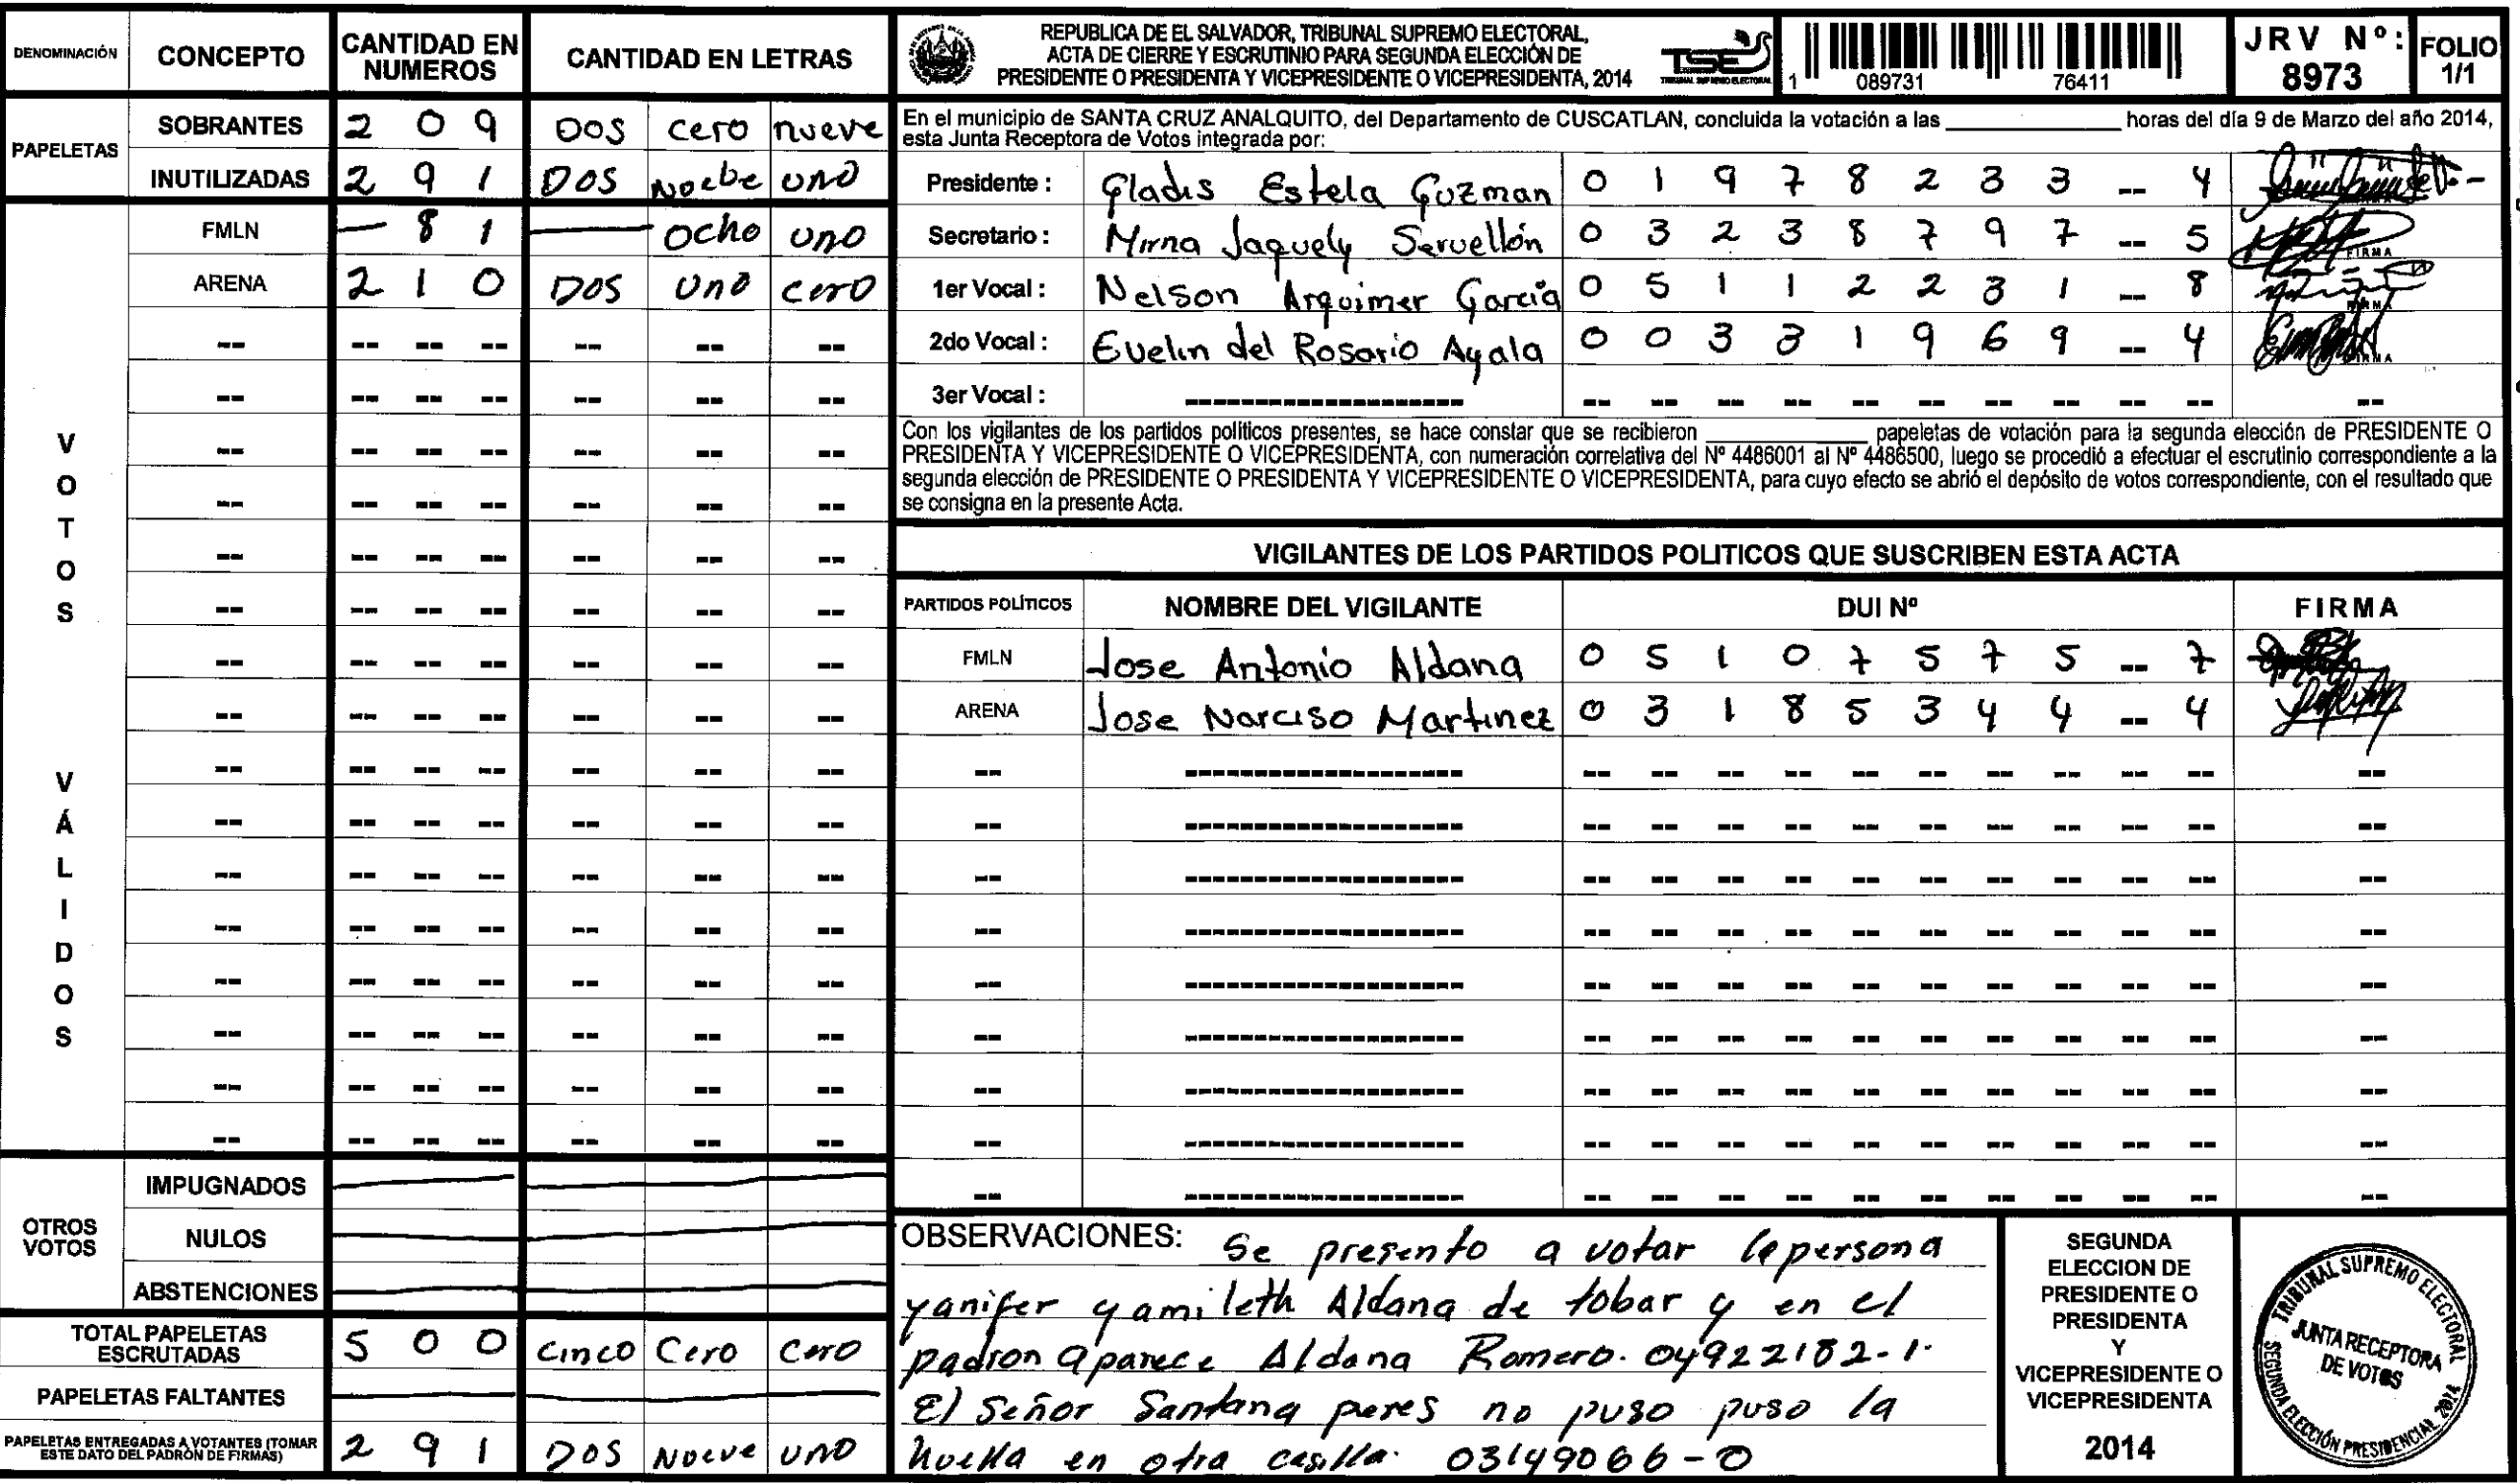 DENOMINACIÓN CONCEPTO CANTIDAD EN NUMEROS CANTIDAD EN LETRAS
PAPELETAS
SOBRANTES 2 0 9 DOS cero nueve
INUTILIZADAS 2 9 1 DOS Noebe UNO
VOTOS VÁLIDOS
FMLN — 8 1 — ocho uno
ARENA 2 1 0 DOS Uno cero
OTROS VOTOS
IMPUGNADOS
NULOS
ABSTENCIONES
TOTAL PAPELETAS ESCRUTADAS 5 0 0 cinco Cero Cero
PAPELETAS FALTANTES
PAPELETAS ENTREGADAS A VOTANTES (TOMAR ESTE DATO DEL PADRÓN DE FIRMAS) 2 9 1 DOS Nueve UNO
REPUBLICA DE EL SALVADOR, TRIBUNAL SUPREMO ELECTORAL,
ACTA DE CIERRE Y ESCRUTINIO PARA SEGUNDA ELECCIÓN DE
PRESIDENTE O PRESIDENTA Y VICEPRESIDENTE O VICEPRESIDENTA, 2014
TSE
TRIBUNAL SUPREMO ELECTORAL
1 089731 76411
JRV Nº: 8973
FOLIO 1/1
En el municipio de SANTA CRUZ ANALQUITO, del Departamento de CUSCATLAN, concluida la votación a las ____ horas del día 9 de Marzo del año 2014,
esta Junta Receptora de Votos integrada por:
Presidente : Gladis Estela Guzman 0 1 9 7 8 2 3 3 -- 4
Secretario : Mirna Jaquely Servellón 0 3 2 3 8 7 9 7 -- 5 FIRMA
1er Vocal : Nelson Arquimer García 0 5 1 1 2 2 3 1 -- 8 FIRMA
2do Vocal : Evelin del Rosario Ayala 0 0 3 3 1 9 6 9 -- 4 FIRMA
3er Vocal :
Con los vigilantes de los partidos políticos presentes, se hace constar que se recibieron ____ papeletas de votación para la segunda elección de PRESIDENTE O
PRESIDENTA Y VICEPRESIDENTE O VICEPRESIDENTA, con numeración correlativa del Nº 4486001 al Nº 4486500, luego se procedió a efectuar el escrutinio correspondiente a la
segunda elección de PRESIDENTE O PRESIDENTA Y VICEPRESIDENTE O VICEPRESIDENTA, para cuyo efecto se abrió el depósito de votos correspondiente, con el resultado que
se consigna en la presente Acta.
VIGILANTES DE LOS PARTIDOS POLITICOS QUE SUSCRIBEN ESTA ACTA
PARTIDOS POLÍTICOS NOMBRE DEL VIGILANTE DUI Nº FIRMA
FMLN Jose Antonio Aldana 0 5 1 0 7 5 7 5 -- 7
ARENA Jose Narciso Martinez 0 3 1 8 5 3 4 4 -- 4
OBSERVACIONES: Se presento a votar la persona
yanifer yamileth Aldana de tobar y en el
padron aparece Aldana Romero. 04922182-1.
El Señor Santana peres no puso puso la
huella en otra casilla. 03149066-0
SEGUNDA
ELECCION DE
PRESIDENTE O
PRESIDENTA
Y
VICEPRESIDENTE O
VICEPRESIDENTA
2014
TRIBUNAL SUPREMO ELECTORAL
JUNTA RECEPTORA
DE VOTOS
SEGUNDA ELECCIÓN PRESIDENCIAL 2014